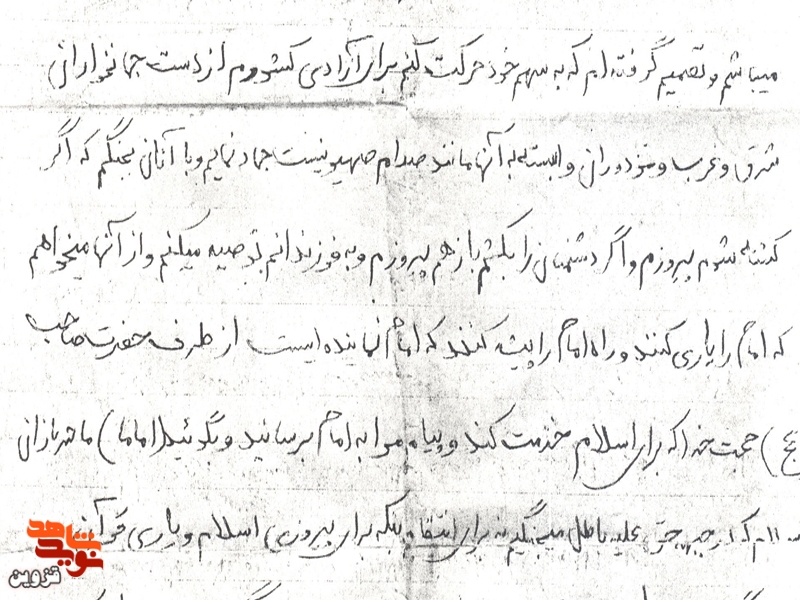 میباشم و تصمیم گرفته ام که به سهم خود حرکت کنم برای آزادی کشورم از دست جهانخوارانی
شرق و غرب و مزدورانی وابسته به آنها مانند صدام صهیونیست جهاد نمایم و با آنان بجنگم که اگر
کشته شوم پیروزم و اگر دشمنان را بکشم باز هم پیروزم و به فرزندانم توصیه میکنم و از آنها میخواهم
که امام را یاری کنند و راه امام را پیشه کنند که امام نماینده است از طرف حضرت صاحب
(عج) حجت خدا که برای اسلام خدمت کند و پیام مرا به امام برسانید و بگوئید (اماما) ما سربازانی
که در حق علیه باطل میجنگیم نه برای انتقام بلکه برای پیروزی اسلام و یاری قرآن
نوید شاهد
قزوین